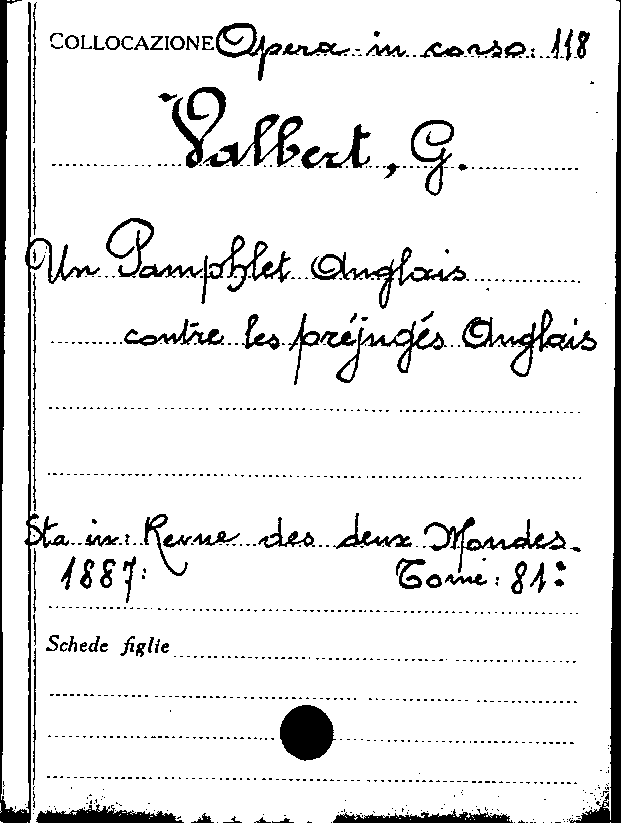 COLLOCAZIONE Opera in corso: 118
Valbert, G.
Un Pamphlet Anglais
contre les préjugés Anglais
Sta in: Revue des deux Mondes.
1887: Tome: 81:
Schede figlie